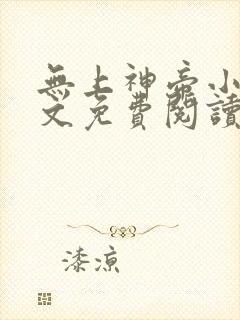 無上神帝小
文免費閱讀
漆涼